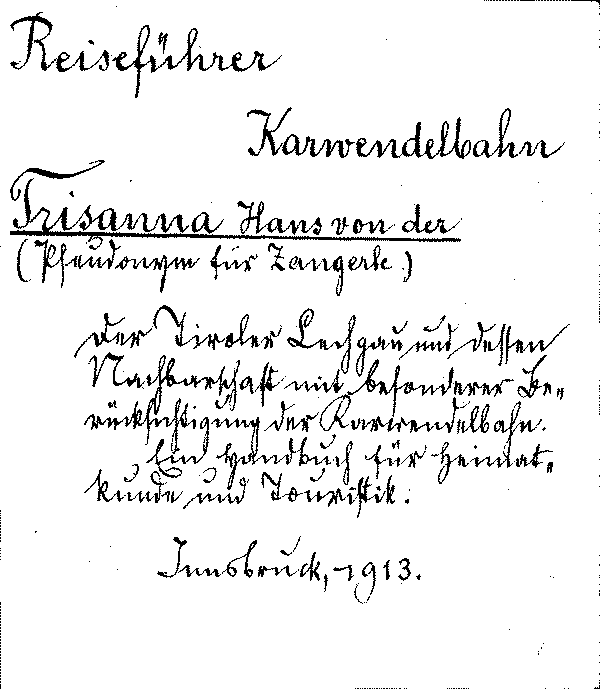 Reiseführer
Karwendelbahn
Trisanna Hans von der
(Pseudonym für Zangerle)
Der Tiroler Lechgau und dessen
Nachbarschaft mit besonderer Be-
rücksichtigung der Karwendelbahn.
Ein Handbuch für Heimat-
kunde und Touristik.
Innsbruck, 1913.